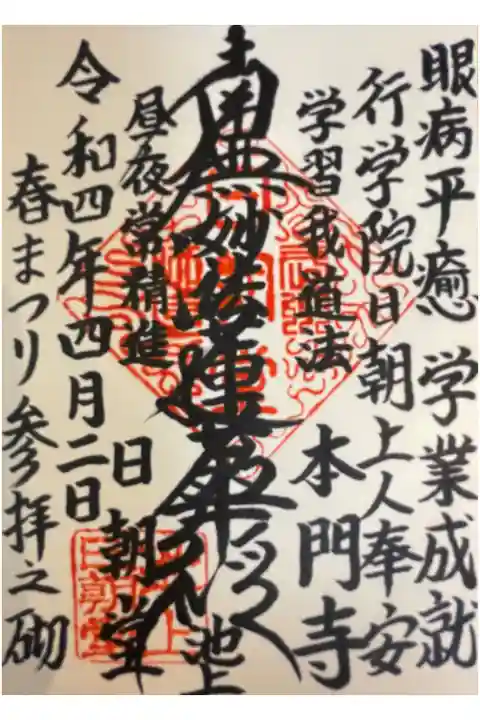 眼病平癒 学業成就
行学院日朝上人奉安
学習我道法
本門寺
南無妙法蓮華経
池上
昼夜常精進
日朝堂
令和四年四月二日
春まつり参拝之砌